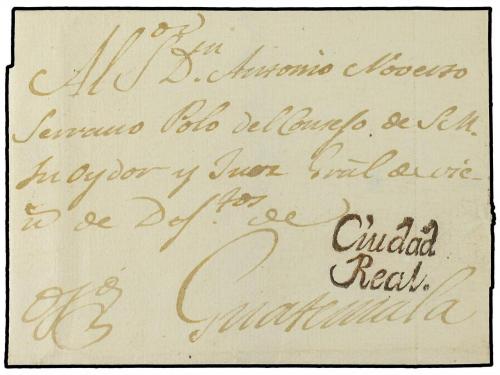 Al S.or D.n Antonio Noverto
Serrano Polo del Consejo de S.M.
Su Oydor y Juez Gral de vie
de Dif.tos de
Ciudad
Real.
Guatemala